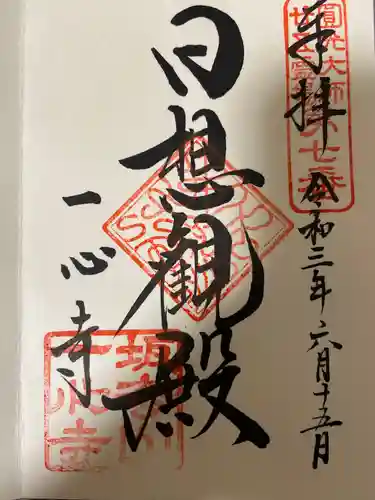 圓光大師
廿五霊場第七番
奉拝
令和三年六月十五日
日想観殿
一心寺
一心寺